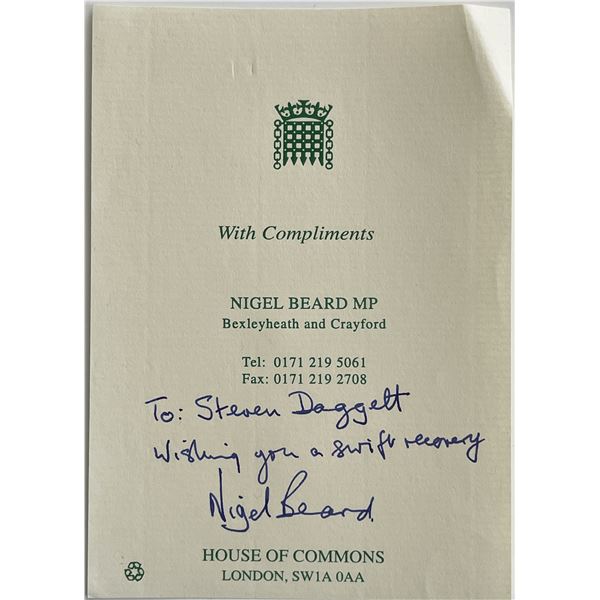 With Compliments
NIGEL BEARD MP
Bexleyheath and Crayford
Tel: 0171 219 5061
Fax: 0171 219 2708
To: Steven Daggett
Wishing you a swift recovery
Nigel Beard
HOUSE OF COMMONS
LONDON, SW1A 0AA